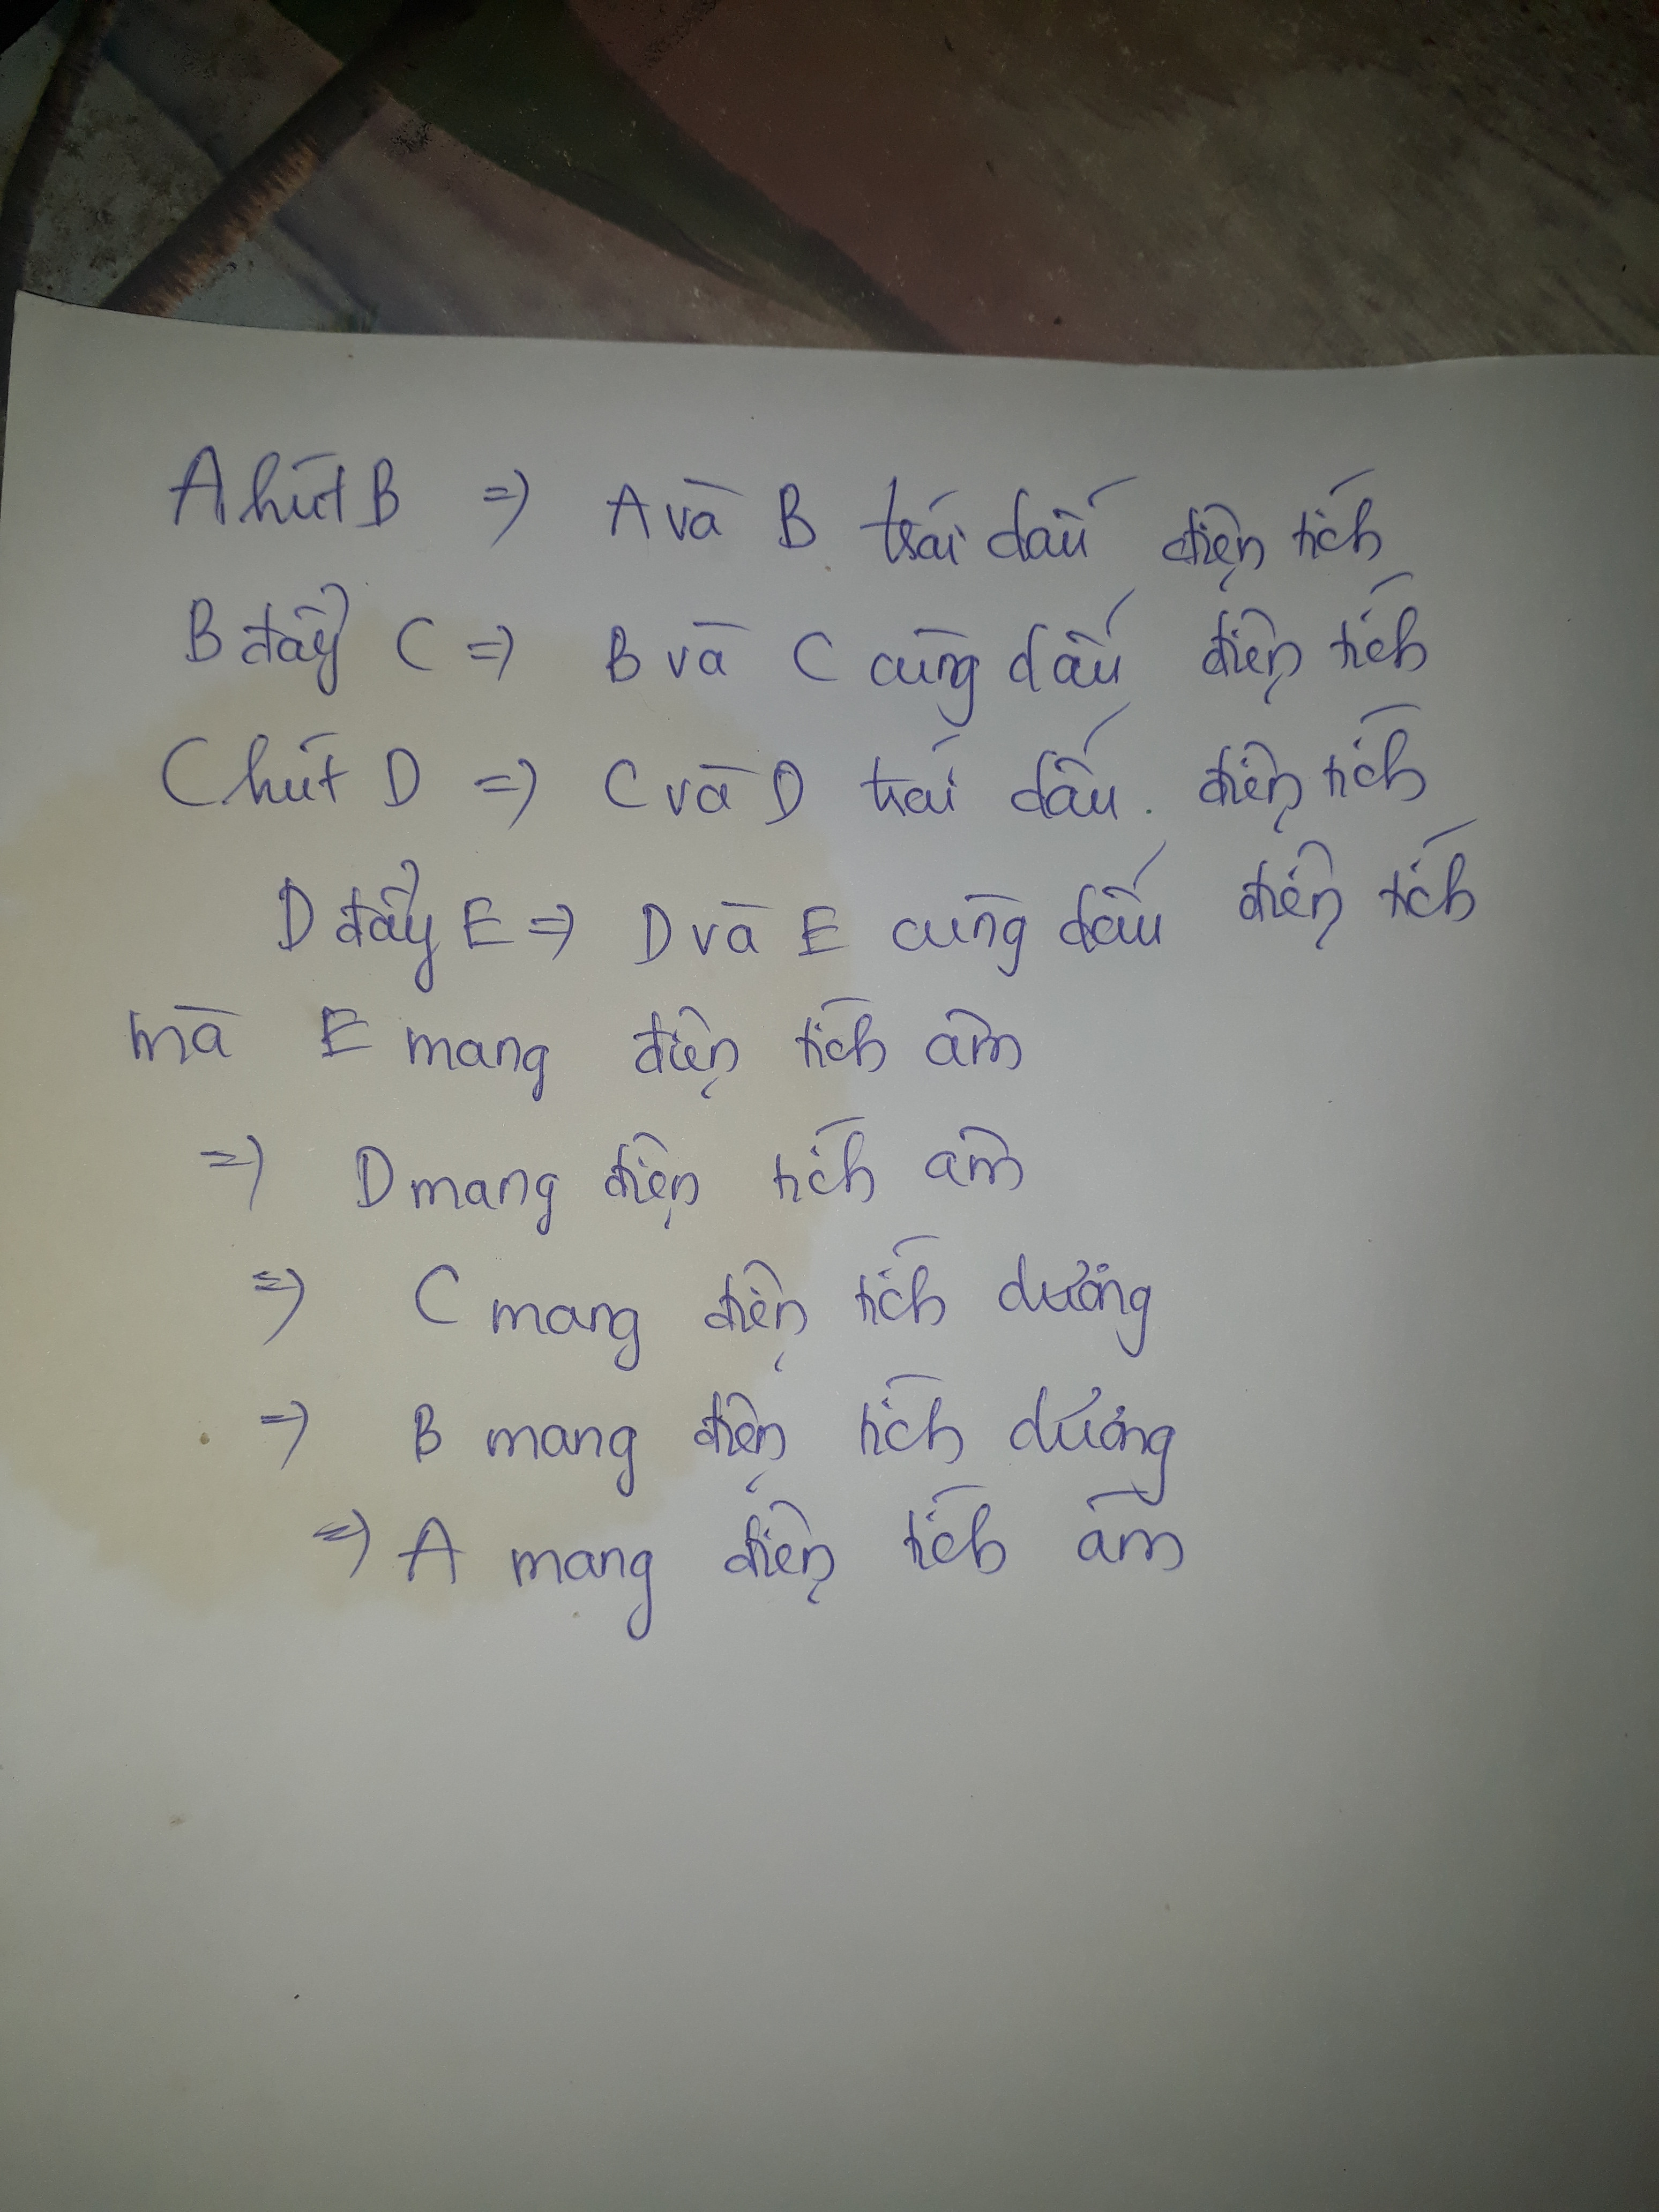 A hút B => A và B trái dấu điện tích
B đẩy C => B và C cùng dấu điện tích
C hút D => C và D trái dấu điện tích
D đẩy E => D và E cùng dấu điện tích
mà E mang điện tích âm
=> D mang điện tích âm
=> C mang điện tích dương
=> B mang điện tích dương
=> A mang điện tích âm